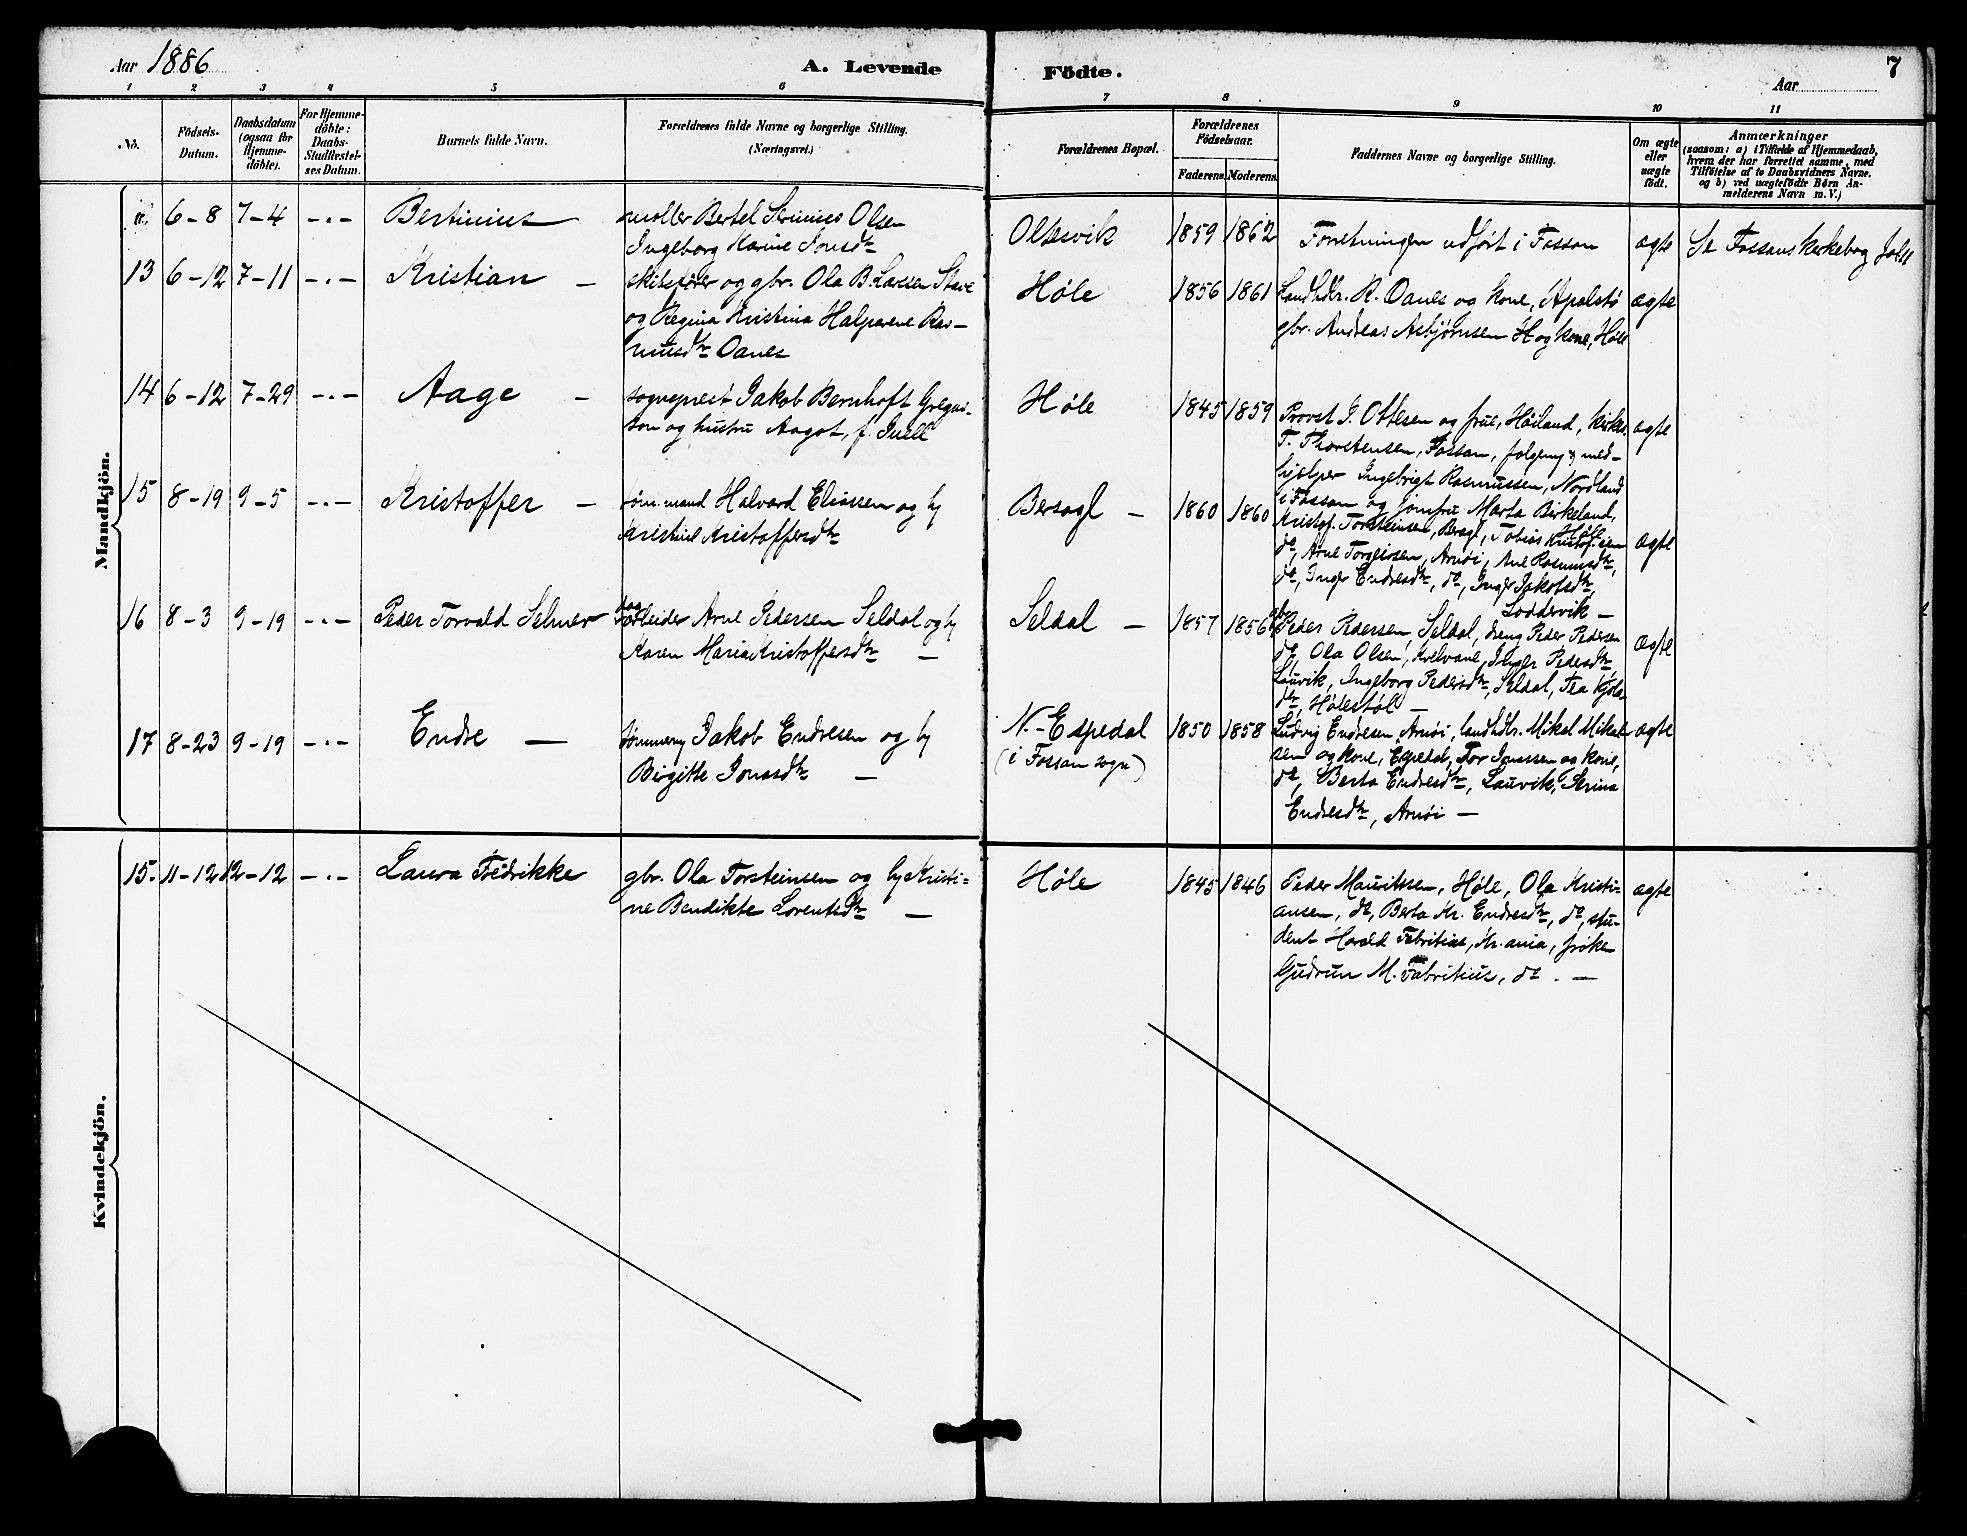 Aar 1886
A. Levende
Födte.
Aar
7
1 2 3 4 5 6 7 8 9 10 11
No.
Födsels-
Datum.
Daabsdatum
(ogsaa for
Hjemme-
döbte).
For Hjemme-
döbte:
Daabs-
Stadfestel-
ses Datum.
Barnets fulde Navn.
Forældrenes fulde Navne og borgerlige Stilling.
(Næringsvei.)
Forældrenes Bopæl.
Forældrenes
Födselsaar.
Faderens. Moderens.
Faddernes Navne og borgerlige Stilling.
Om ægte
eller
uægte
födt.
Anmærkninger
(saasom: a) i Tilfælde af Hjemmedaab,
hvem der har forrettet samme, med
Tilföielse af to Daabsvidners Navne.
og b) ved uægtefödte Börn An-
melderens Navn m. V.)
Mandkjön.
6-8 7-4 -"- Bertinius
møller Bertel Serinius Olsen
Ingeborg Karine Jonsdtr
Oltesvik 1859 1862
Forretningen udført i Fossan
ægte
Se Fossans kirkebog
13 6-12 7-11 -"- Kristian -
skibsfører og gbr. Ola B. Larsen Stave
og Regina Kristina Halparene Ras-
musdtr Oanes
Høle 1856 1861
Landhdlr. R. Oanes og kone, Apalstø
gbr. Andreas Asbjørnsen H og kone, Høle
ægte
14 6-12 7-29 -"- Aage -
sogneprest Jakob Bernhoft Gregus-
son og hustru Aagot, f. Juell
Høle 1845 1859
Provst J. Ottesen og frue, Høiland, kirks.
T. Thorstensen, Fossan, med-
hjælper Ingebrigt Rasmussen, Nordland
i Fossan og jomfru Marta Birkeland,
Høle
ægte
15 8-19 9-5 -"- Kristoffer -
tøm.mand Halvard Eliassen og h
Kristine Kristoffersdtr
Bersagl - 1860 1860
Kristof. Torsteinsen, Bersagl, Tobias Kristofersen
do, Arne Torgeirsen, Arnøi, Ane Rasmusdtr,
do, Inger Endresdtr, do, Inger Jakobsdtr,
Loddervik -
ægte
16 8-3 9-19 -"- Peder Torvald Selmer
dagarbeider Arne Pedersen Seldal og h
Karen Maria Kristoffersdtr -
Seldal - 1857 1856
gbr Peder Pedersen, Seldal, dreng Peder Pedersen
do, Ola Olsen, Kvelvane, Inger Pedersdtr,
Lauvik, Ingeborg Pedersdtr, Seldal, Tea
Hølestøl -
ægte
17 8-23 9-19 -"- Endre -
tømmerm Jakob Endresen og h
Birgitte Jonasdtr -
N.-Espedal
(i Fossan sogn)
1850 1858
Ludvig Endresen, Arnøi, landhdlr. Mikal Mikal-
sen og kone, Espedal, Tor Jonassen og kone,
do, Berta Endresdtr, Lauvik, Serina
Endresdtr, Arnøi -
ægte
Kvindekjön.
15. 11-12 12-12 -"- Laura Fredrikke
gbr. Ola Torsteinsen og h Kristi-
ne Bendikte Lorentsdtr -
Høle 1845 1846
Peder Mauritssen, Høle, Ola Kristi-
ansen, do, Berta Kr. Endresdtr, do, stu-
dent Harald Fabritius, Kr.ania, frøken
Gudrun M. Fabritius, do. -
ægte